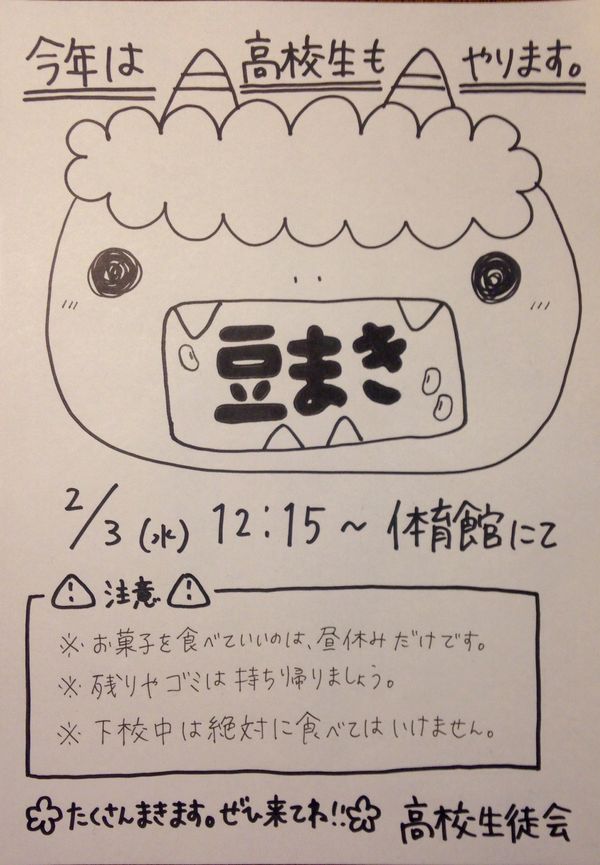 今年は 高校生も やります。
豆まき
2/3(水) 12:15～ 体育館にて
⚠注意⚠
※お菓子を食べていいのは、昼休みだけです。
※残りやゴミは持ち帰りましょう。
※下校中は絶対に食べてはいけません。
たくさんまきます。ぜひ来てね!! 高校生徒会